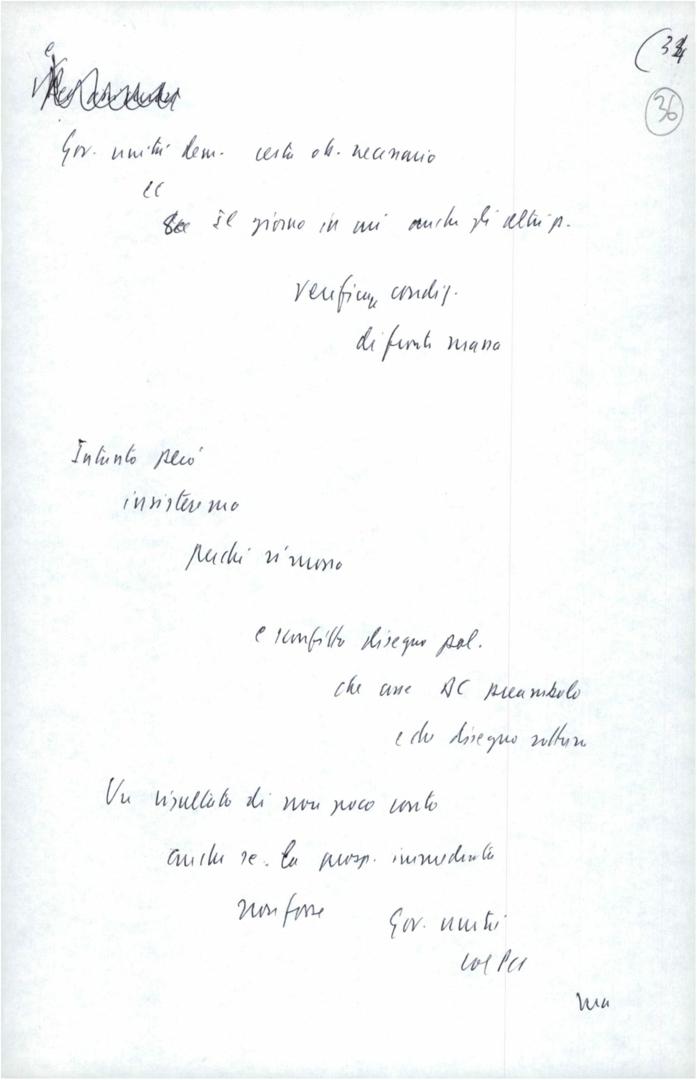 (34
36
e
Gov. unità dem. resta ob. necessario
e
il giorno in cui anche gli altri p.
verifiche condiz.
di fronte massa
Intanto però
insisteremo
perché rimosso
e sconfitto disegno pol.
che DC preambolo
e che disegno rottura
Un risultato di non poco conto
anche se la prosp. immediata
non fosse Gov. unità
col PCI
ma